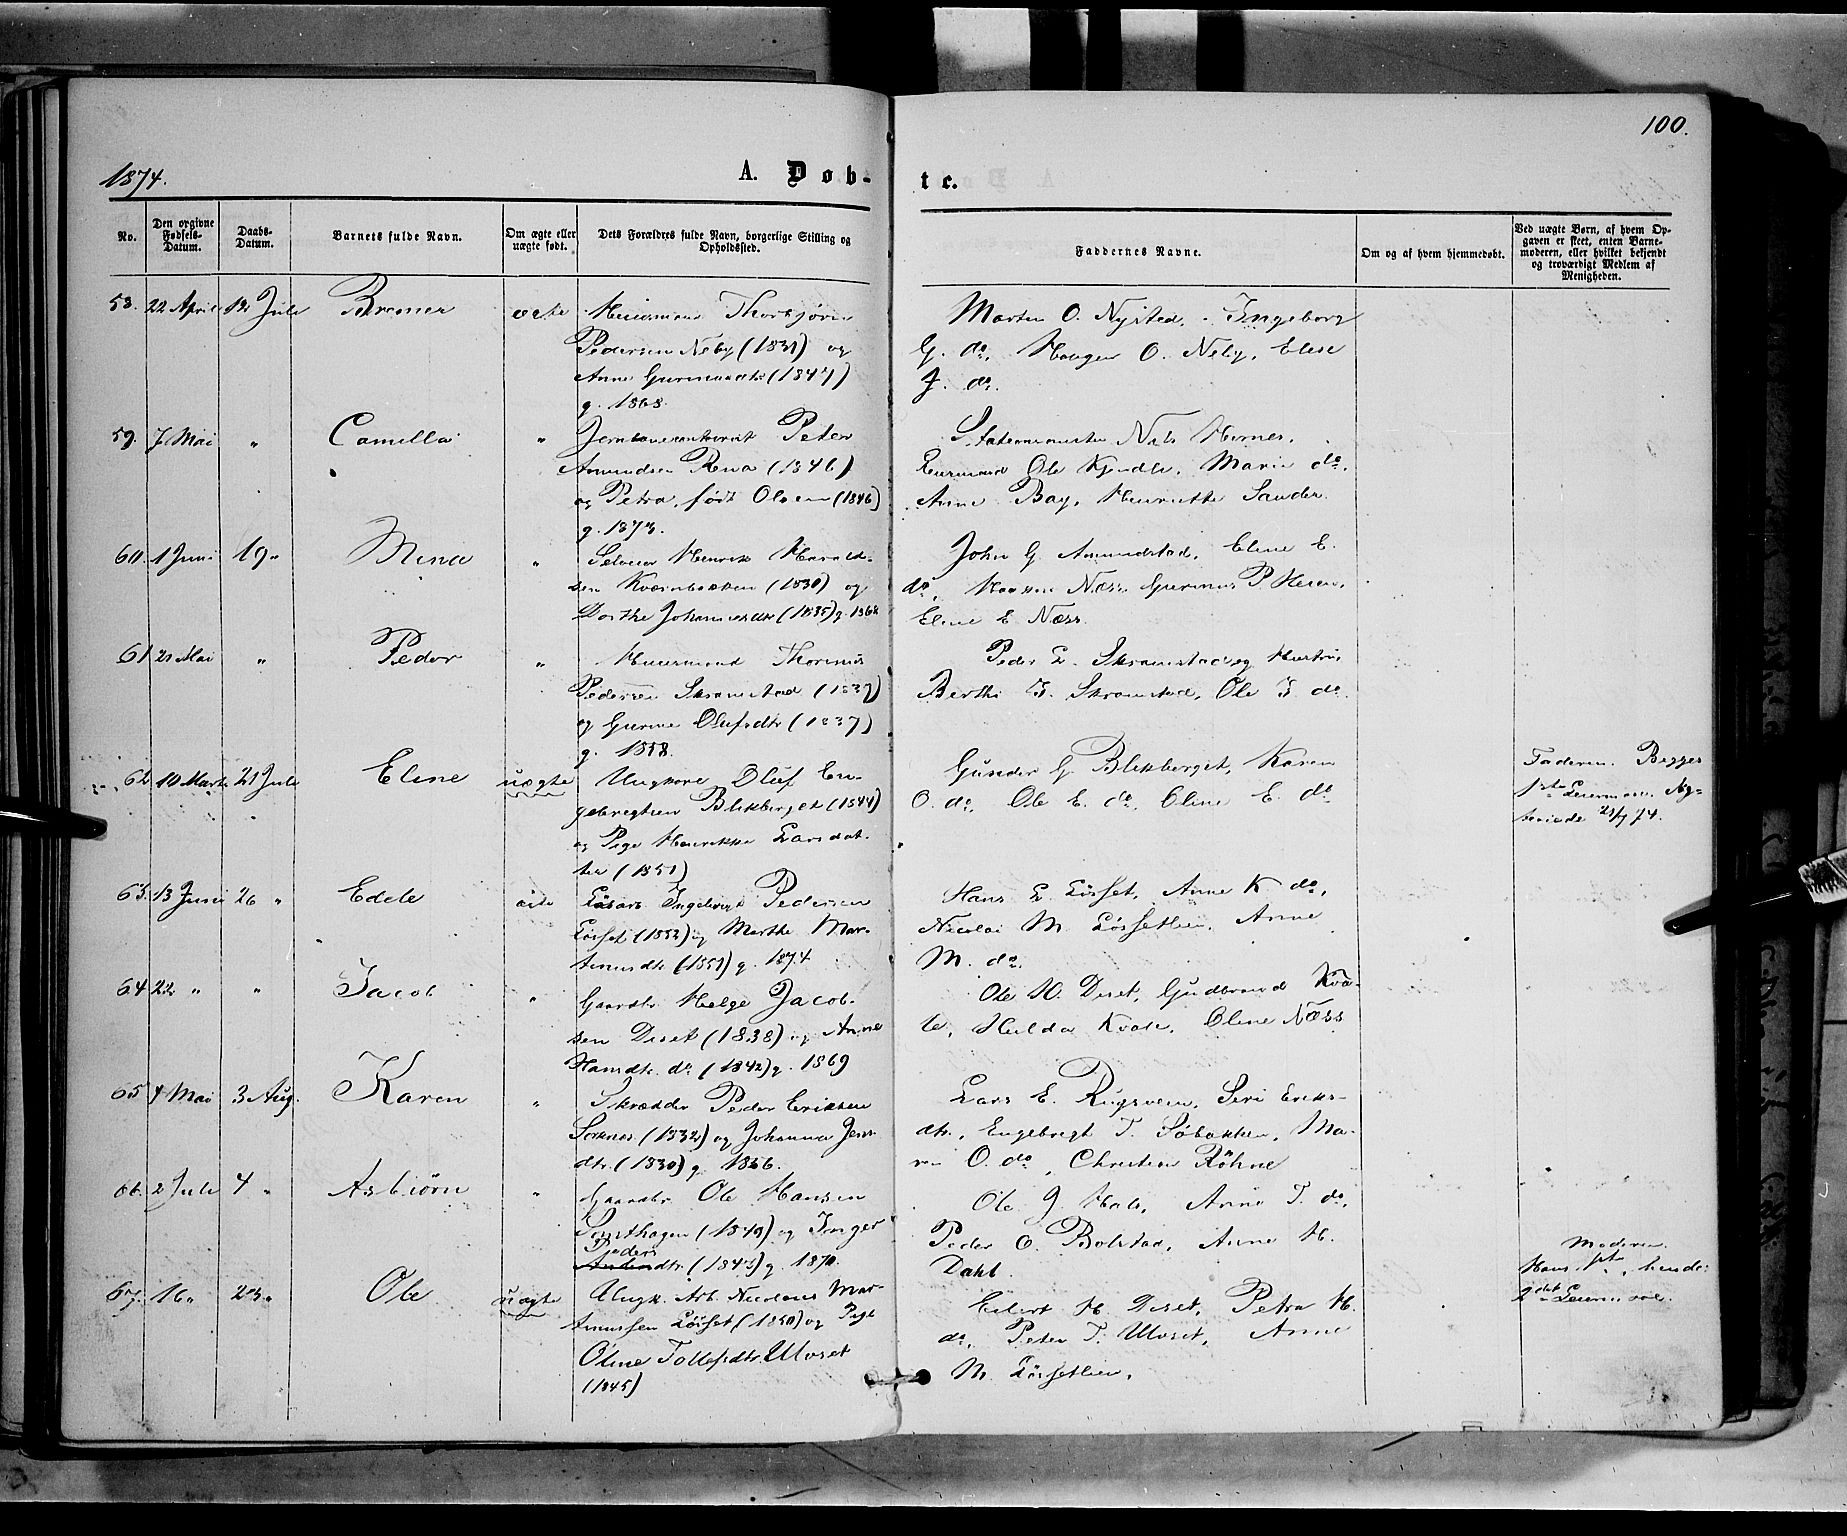 100.
1874.
A. Döb-
te.
No.
Den opgivne Fødsels-Datum.
Daabs-Datum.
Barnets fulde Navn.
Om ægte eller uægte født.
Dets Forældres fulde Navn, borgerlige Stilling og Opholdssted.
Faddernes Navne.
Om og af hvem hjemmedøbt.
Ved uægte Børn, af hvem Opgaven er skeet, enten Barnemoderen, eller hvilket bekjendt og troværdigt Medlem af Menigheden.
22 April 12 Juli
Huusmand Thorbjørn
Pedersen Neby (1831) og
Anne
g. 1868.
Morten O. Nysted, Ingeborg
G. do, Haagen O. Neby, Elise
J. do.
59. 7 Mai " Camilla "
Peter
Amundsen Rena (1846)
og Petra, født Olsen (1846)
g. 1873.
Nils Hernes,
Ole Kjendle, Marie do,
Anne Bay, Henriette Sander.
60. 1 Juni 19 " Mina "
Selveier Henrik Harald-
sen Kværnbækken (1830) og
Dorthe
John G. Amundstad, Eline E.
do, Næss, P. Heren,
Eline E. Næss.
61 21 Mai " Peder "
Huusmand Thorinus
Pedersen Skramstad (1839)
og Gurine Olufsdtr (1837)
g. 1858.
Peder L. Skramstad og Hustru
Berthe J. Skramstad, Ole J. do.
62 10 Marts 21 Juli Eline uægte
Ungkarl Oluf En-
gebregtsen Blikberget (1844)
og Pige Henrikke Larsdat-
ter (1851)
Gunder G. Blikberget, Karen
O. do, Ole E. do, Oline E. do
Faderen. Begges
1ste Leiermaal.
63. 13 Juni 26 " Edele
Ingebrigt Pedersen
Løsset (1852) og Marthe Mar-
tinusdtr (1851) g. 1874.
Hans L. Løsset, Anne K. do,
Nicolai M. Løssetlien, Anne
M. do.
64 22 " " Jacob "
Gaardbr. Helge Jacob-
sen Deset (1838) og Anne
Hansdtr. do (1842) g. 1869
Ole H. Deset, Gudbrand Kva-
le, Hulda Kvale, Oline Næss
65 4 Mai 3 Aug. Karen "
Skrædder Peder Eriksen
Sorknes (1832) og Johanna Jens-
dtr. (1830) g. 1856.
Lars E. Rugsveen, Seri Eriks-
dtr, Engebregt T. Søbakken, Ma-
ren O. do, Christian Röhne
66. 2 Juli 4 " Asbiörn "
Gaardbr. Ole Hansen
(1840) og Inger
Peders
dtr. (1843) g. 1870.
Ole J. Hole, Anne T. do,
Peder O. Bolstad, Anne H.
Dahl.
67. 16 " 23 " Ole uægte
Ungk. Arb. Nicolaus Mar-
tinussen Løsset (1850) og Pige
Oline Tollefsdtr. Ulvset
(1845)
Eilert H. Deset, Petra H.
do, Peter T. Ulvset, Anne
M. Løssetlien.
Moderen.
Hans 1ste, hendes